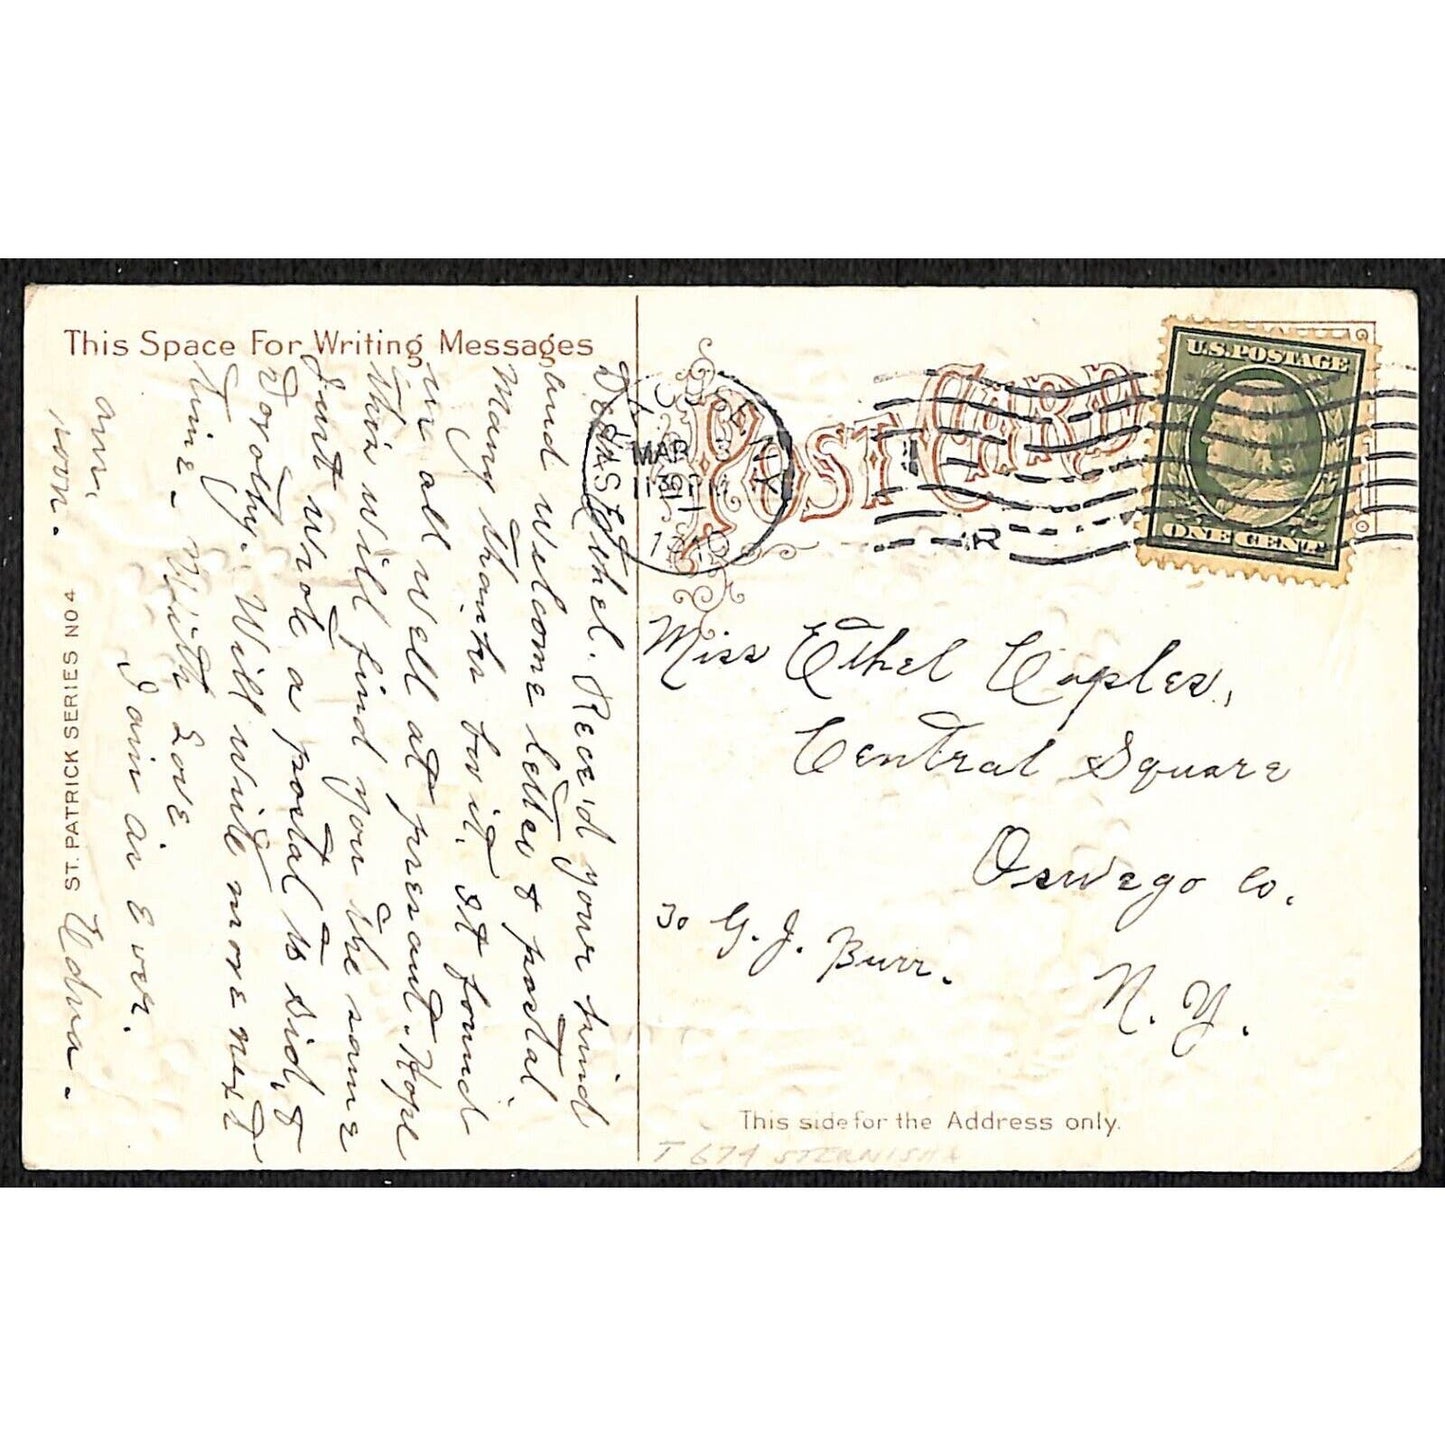 This Space For Writing Messages
Dear Ethel. Rece'd your kind
and welcome letter & postal
Many thanks for it. It found
us all well at present. Hope
this will find you the same
Just wrote a postal to Sid, &
Dorothy. Will write more next
time. With Love
I am as Ever.
Edna.
ans.
soon.
ST. PATRICK SERIES NO 4
POST CARD
MAR
11 30 A
1911
N.Y.
R
U.S. POSTAGE
ONE CENT
Miss Ethel Coples,
Central Square
Oswego Co.
℅ G. J. Burr.
N. Y.
This side for the Address only.
T 674